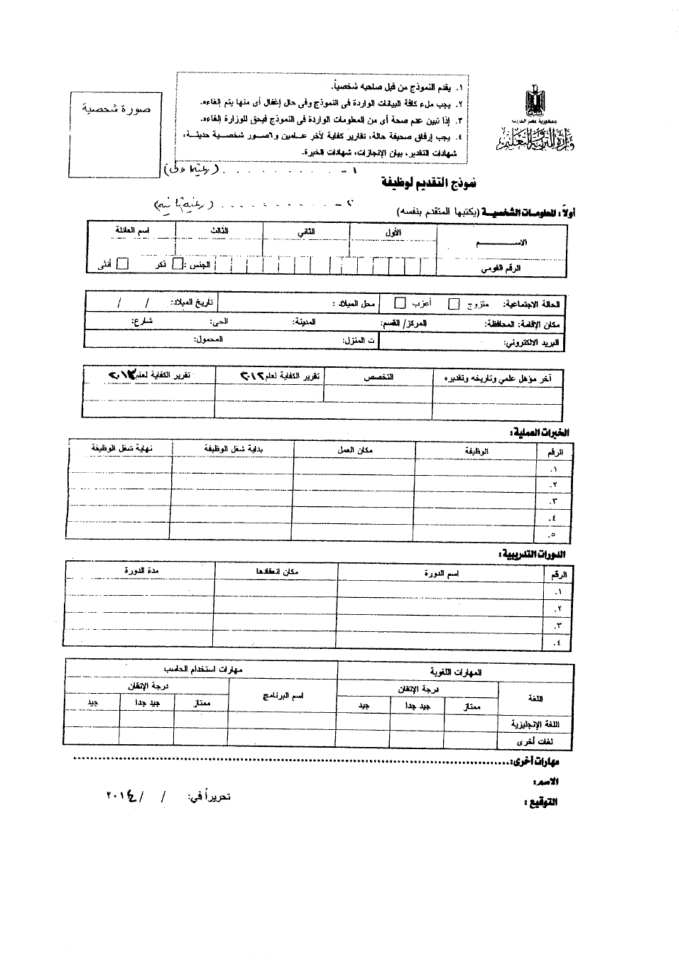 ١. يقدم النموذج من قبل صاحبه شخصياً.
٢. يجب ملء كافة البيانات الواردة فى النموذج وفى حال إغفال أى منها يتم إلغاءه.
٣. إذا تبين عدم صحة أى من المعلومات الواردة فى النموذج فيحق للوزارة إلغاءه.
٤. يجب إرفاق صحيفة حالة، تقارير كفاية لآخر عامين و٦صور شخصية حديثة، شهادات التقدير، بيان الإنجازات، شهادات الخبرة.
صورة شخصية
جمهورية مصر العربية
وزارة التربية والتعليم
١- . . . . . . . . . (رغبة أولى)
نموذج التقديم لوظيفة
٢- . . . . . . . . . (رغبة ثانية)
أولاً: المعلومات الشخصية (يكتبها المتقدم بنفسه)
الاسم الأول الثاني الثالث اسم العائلة
الرقم القومي الجنس: ذكر أنثى
الحالة الاجتماعية: متزوج أعزب محل الميلاد : تاريخ الميلاد: / /
مكان الإقامة: المحافظة: المركز/ القسم: المدينة: الحي: شارع:
البريد الالكتروني: ت المنزل: المحمول:
آخر مؤهل علمي وتاريخه وتقديره التخصص تقرير الكفاية لعام ٢٠١٢ تقرير الكفاية لعام
الخبرات العملية:
الرقم الوظيفة مكان العمل بداية شغل الوظيفة نهاية شغل الوظيفة
١.
٢.
٣.
٤.
٥.
الدورات التدريبية:
الرقم اسم الدورة مكان انعقادها مدة الدورة
١.
٢.
٣.
٤.
المهارات اللغوية مهارات استخدام الحاسب
اللغة درجة الإتقان اسم البرنامج درجة الإتقان
ممتاز جيد جدا جيد ممتاز جيد جدا جيد
اللغة الإنجليزية
لغات أخرى
مهارات أخرى:
الاسم:
التوقيع : تحريراً في: / / ٢٠١٤